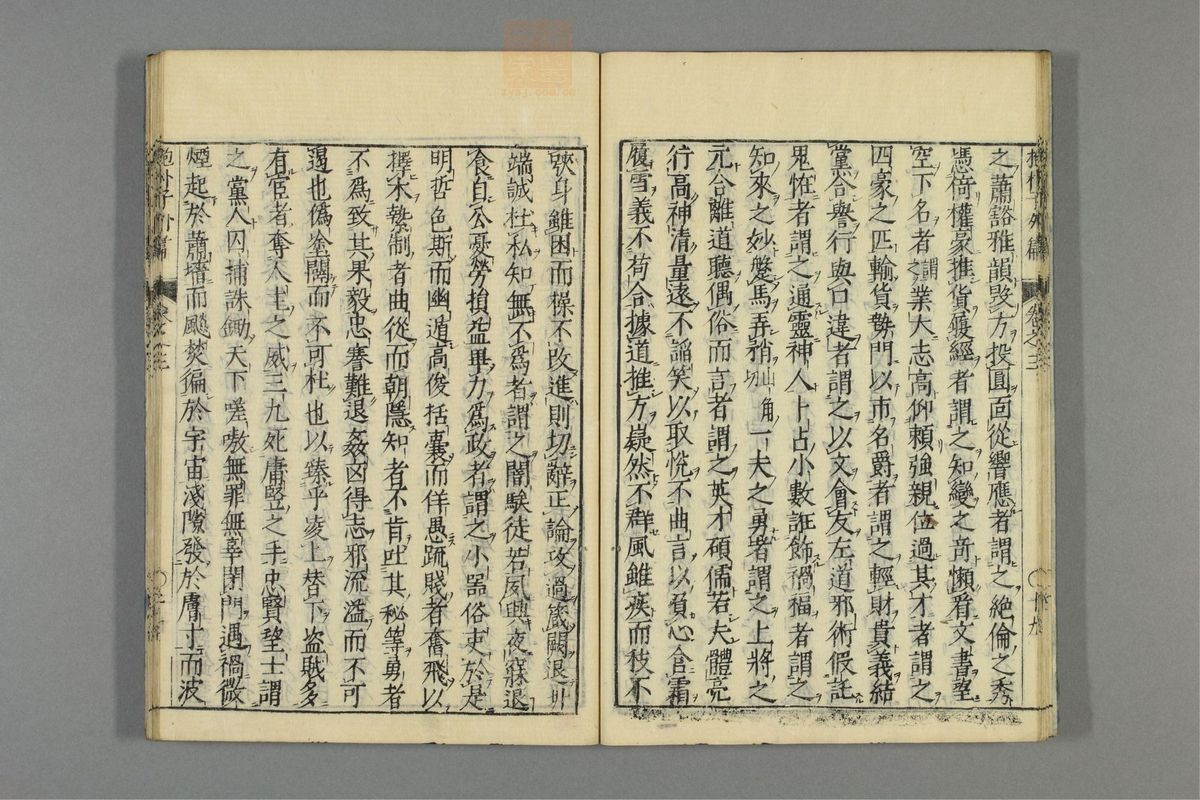 之蕭豁雅韻毀方投圓面從響應者謂之絕倫之秀
憑倚權豪推貨履經者謂之知變之奇懶看文書望
空下名者謂之業大志高仰賴強親位過其才者謂之
四豪之匹輸貨勢門以市名爵者謂之輕財貴義結
黨合譽行與口違者謂之以文會友左道邪術假託
鬼怪者謂之通靈神人卜占小數誑飾禍福者謂之
知來之妙䠠馬弄矟一夫之勇者謂之上將之
元合離道聽偶俗而言者謂之英才碩儒若夫體亮
行高神清量遠不諂笑以取悅不曲言以負心含霜
履雪義不苟合據道推方嶷然不群風雖疾而枝不
身雖困而操不改進則切辭正論攻過箴闕退
端誠杜私知無不為者謂之闇騃徒苦夙興夜寐退
食自公憂勞損益畢力為政者謂之小器俗吏於是
明哲色斯而幽遁高俊括囊而佯愚疏賤者奮飛以
擇木縶制者曲從而朝隱知者不肯吐其秘筭勇者
不為致其果毅忠謇難退姦凶得志邪流溢而不可
遏也偽塗闢而不可杜也以臻乎凌上替下盜賊多
有宦者奪人主之威三九死庸豎之手忠賢望士謂
之黨人囚捕誅鋤天下嗟嗷無罪無辜閉門遇禍微
煙起於蕭墻而飈焚徧於宇宙淺隙發於膚寸而波
抱朴子外篇
卷之三